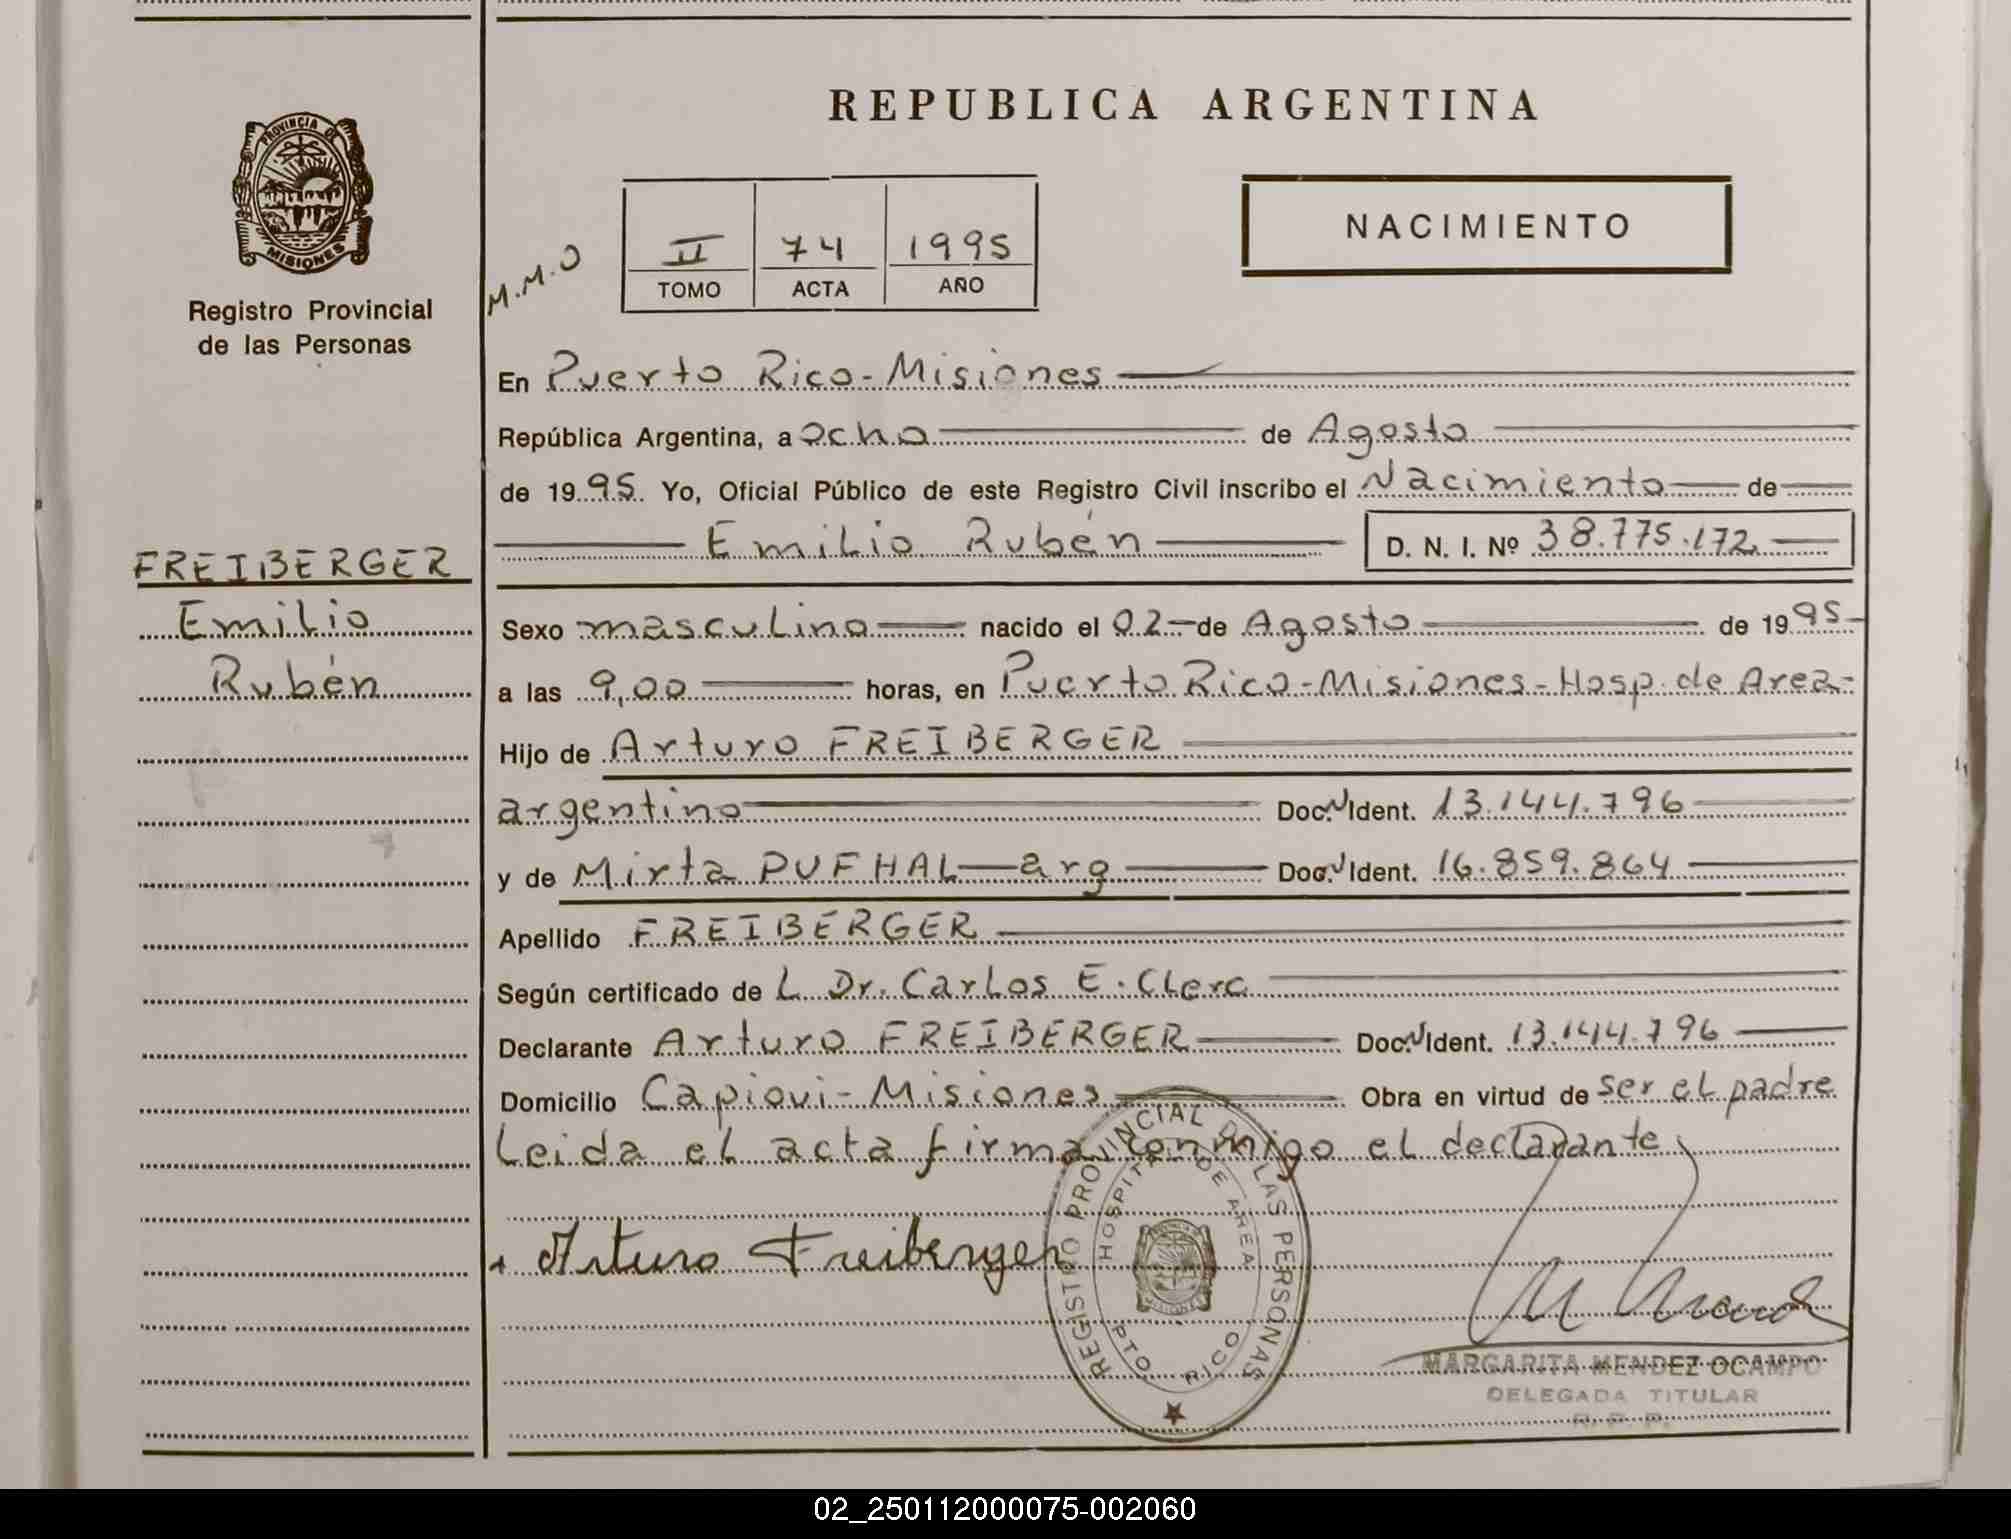 REPUBLICA ARGENTINA
PROVINCIA DE
MISIONES
Registro Provincial
de las Personas
M.M.O
II 74 1995
TOMO ACTA AÑO
NACIMIENTO
En Puerto Rico-Misiones
República Argentina, a ocho de Agosto
de 1995. Yo, Oficial Público de este Registro Civil inscribo el Nacimiento de
Emilio Rubén D. N. I. Nº 38.775.172
FREIBERGER
Emilio
Rubén
Sexo masculino nacido el 02 de Agosto de 1995
a las 9,00 horas, en Puerto Rico-Misiones-Hosp. de Area-
Hijo de Arturo FREIBERGER
argentino Doc.N Ident. 13.144.796
y de Mirta PUFHAL-arg Doc.N Ident. 16.859.864
Apellido FREIBERGER
Según certificado de L Dr. Carlos E. Clerc
Declarante Arturo FREIBERGER Doc.N Ident. 13.144.796
Domicilio Capiovi-Misiones Obra en virtud de ser el padre
Leida el acta firma conmigo el declarante
Arturo Freiberger
REGISTRO PROVINCIAL DE LAS PERSONAS
HOSPITAL DE AREA
PTO. RICO
MISIONES
MARGARITA MENDEZ OCAMPO
DELEGADA TITULAR
R. P. P.
02_250112000075-002060